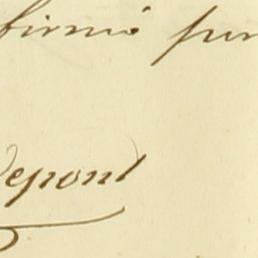 firmó por
Depont